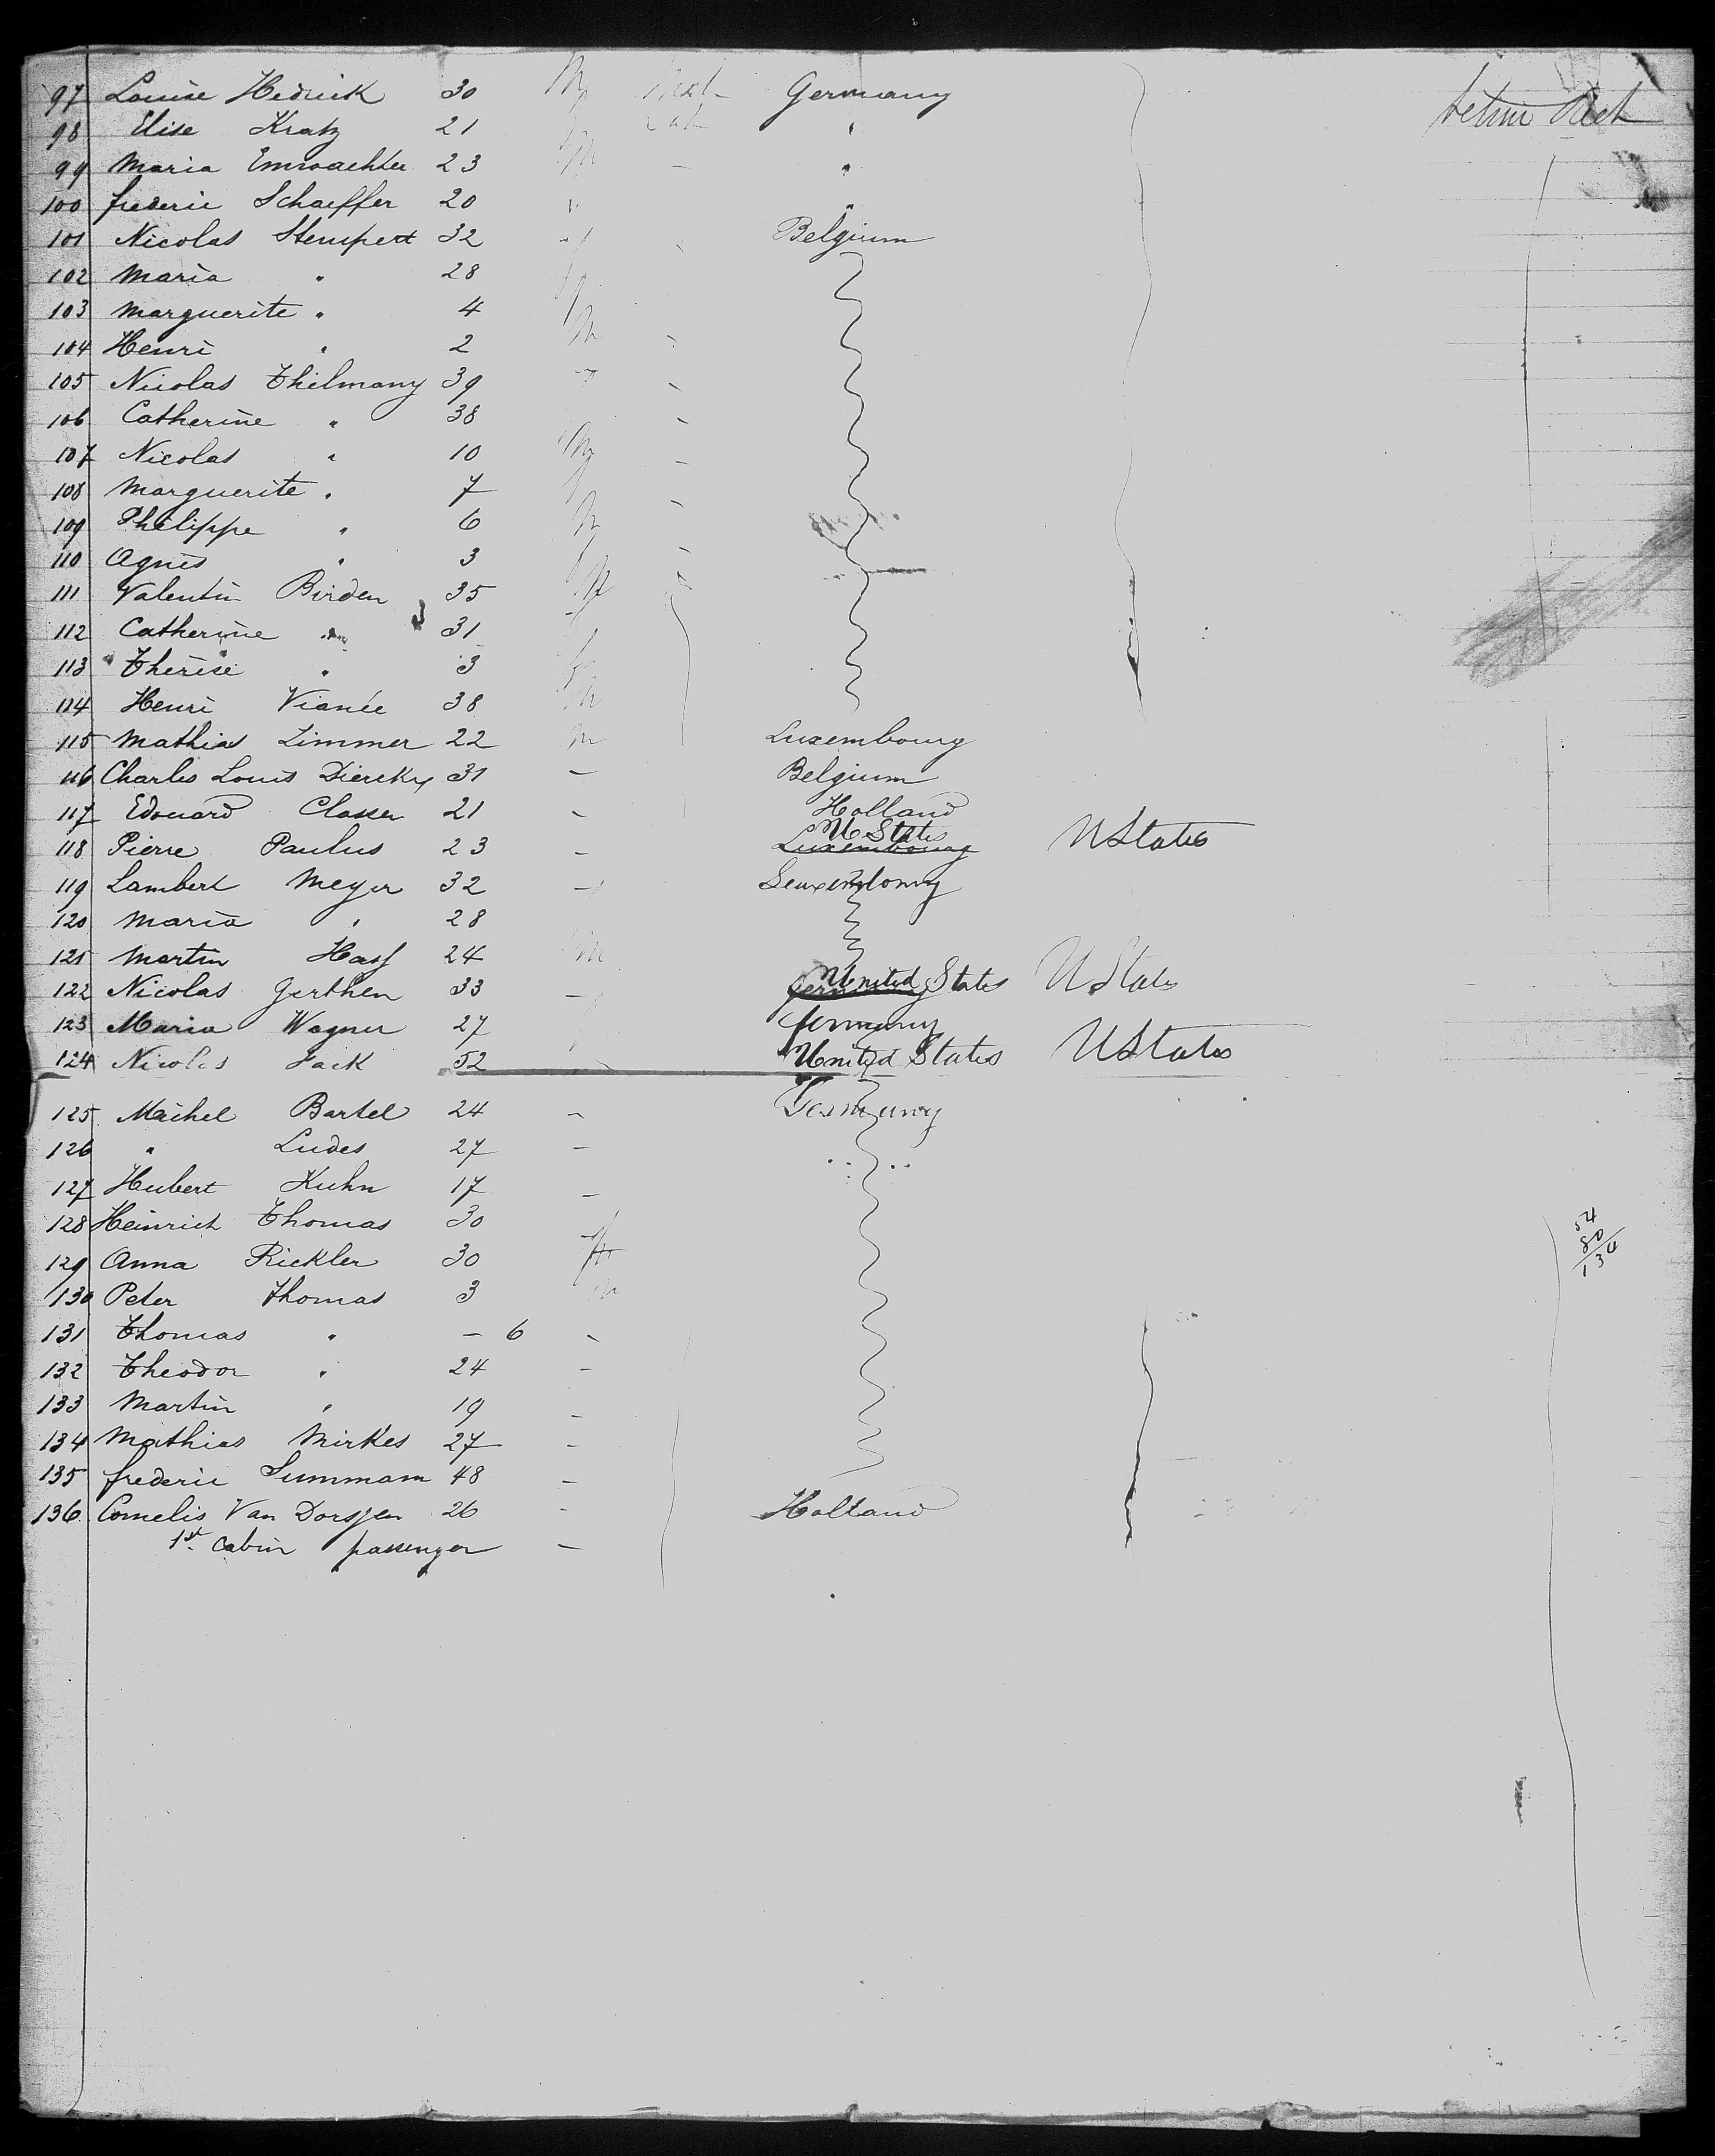 97 Louise Hedrick 30 M Germany
98 Elise Kratz 21 "
99 Maria Emwachter 23 - "
100 frederic Schaeffer 20 " "
101 Nicolas Stempert 32 Belgium
102 Maria " 28
103 Marguerite " 4
104 Henri " 2 M
105 Nicolas Thilmany 39
106 Catherine " 38
107 Nicolas " 10 M
108 Marguerite " 7
109 Philippe " 6 M
110 Agnès " 3
111 Valentin Birden 35 M
112 Catherine " 31
113 Thérèse " 3
114 Henri Vianée 38 M
115 Mathias Limmer 22 M Luxembourg
116 Charles Louis Dierckx 31 - Belgium
117 Edouard Classer 21 - Holland
118 Pierre Paulus 23 - Luxembourg U States U States
119 Lambert Meyer 32 - Luxembourg
120 Maria " 28
121 Martin Hass 24 M
122 Nicolas Gerthen 33 - Germany United States U States
123 Maria Wagner 27 Germany
124 Nicolas Jack 52 - United States U States
125 Michel Bartel 24 - Germany
126 " Ludes 27 -
127 Hubert Kuhn 17 -
128 Heinrich Thomas 30
129 Anna Rickler 30
130 Peter Thomas 3 M
131 Thomas " - 6 -
132 Theodor " 24 -
133 Martin " 19 -
134 Mathias Mirkes 27 -
135 frederic Summam 48 -
136 Cornelis Van Dorsjen 26 - Holland
1st cabin passenger -
54
80
134